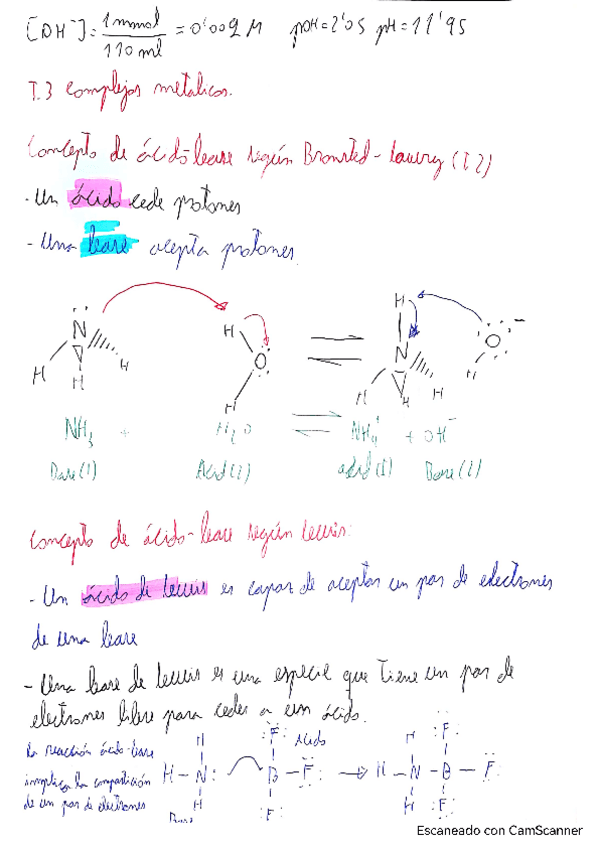 [OH⁻]= 1 mmol / 110 ml = 0'009 M pOH=2'05 pH=11'95
T.3 Complejos metálicos.
Concepto de ácido-base según Bronsted-Lowry (T2)
- Un ácido cede protones
- Una base acepta protones.
N H H H
H O H
H N H H H
O H -
NH₃ + H₂O ⇌ NH₄⁺ + OH⁻
Base(1) Acid(2) acid(1) Base(2)
Concepto de ácido-base según Lewis:
- Un ácido de Lewis es capaz de aceptar un par de electrones
de una base
- Una base de Lewis es una especie que tiene un par de
electrones libre para ceder a un ácido.
La reacción ácido-base
implica la compartición
de un par de electrones
H H-N: H Base
:F: B-F: :F: Acido
H H-N-B-F: H :F: :F:
Escaneado con CamScanner